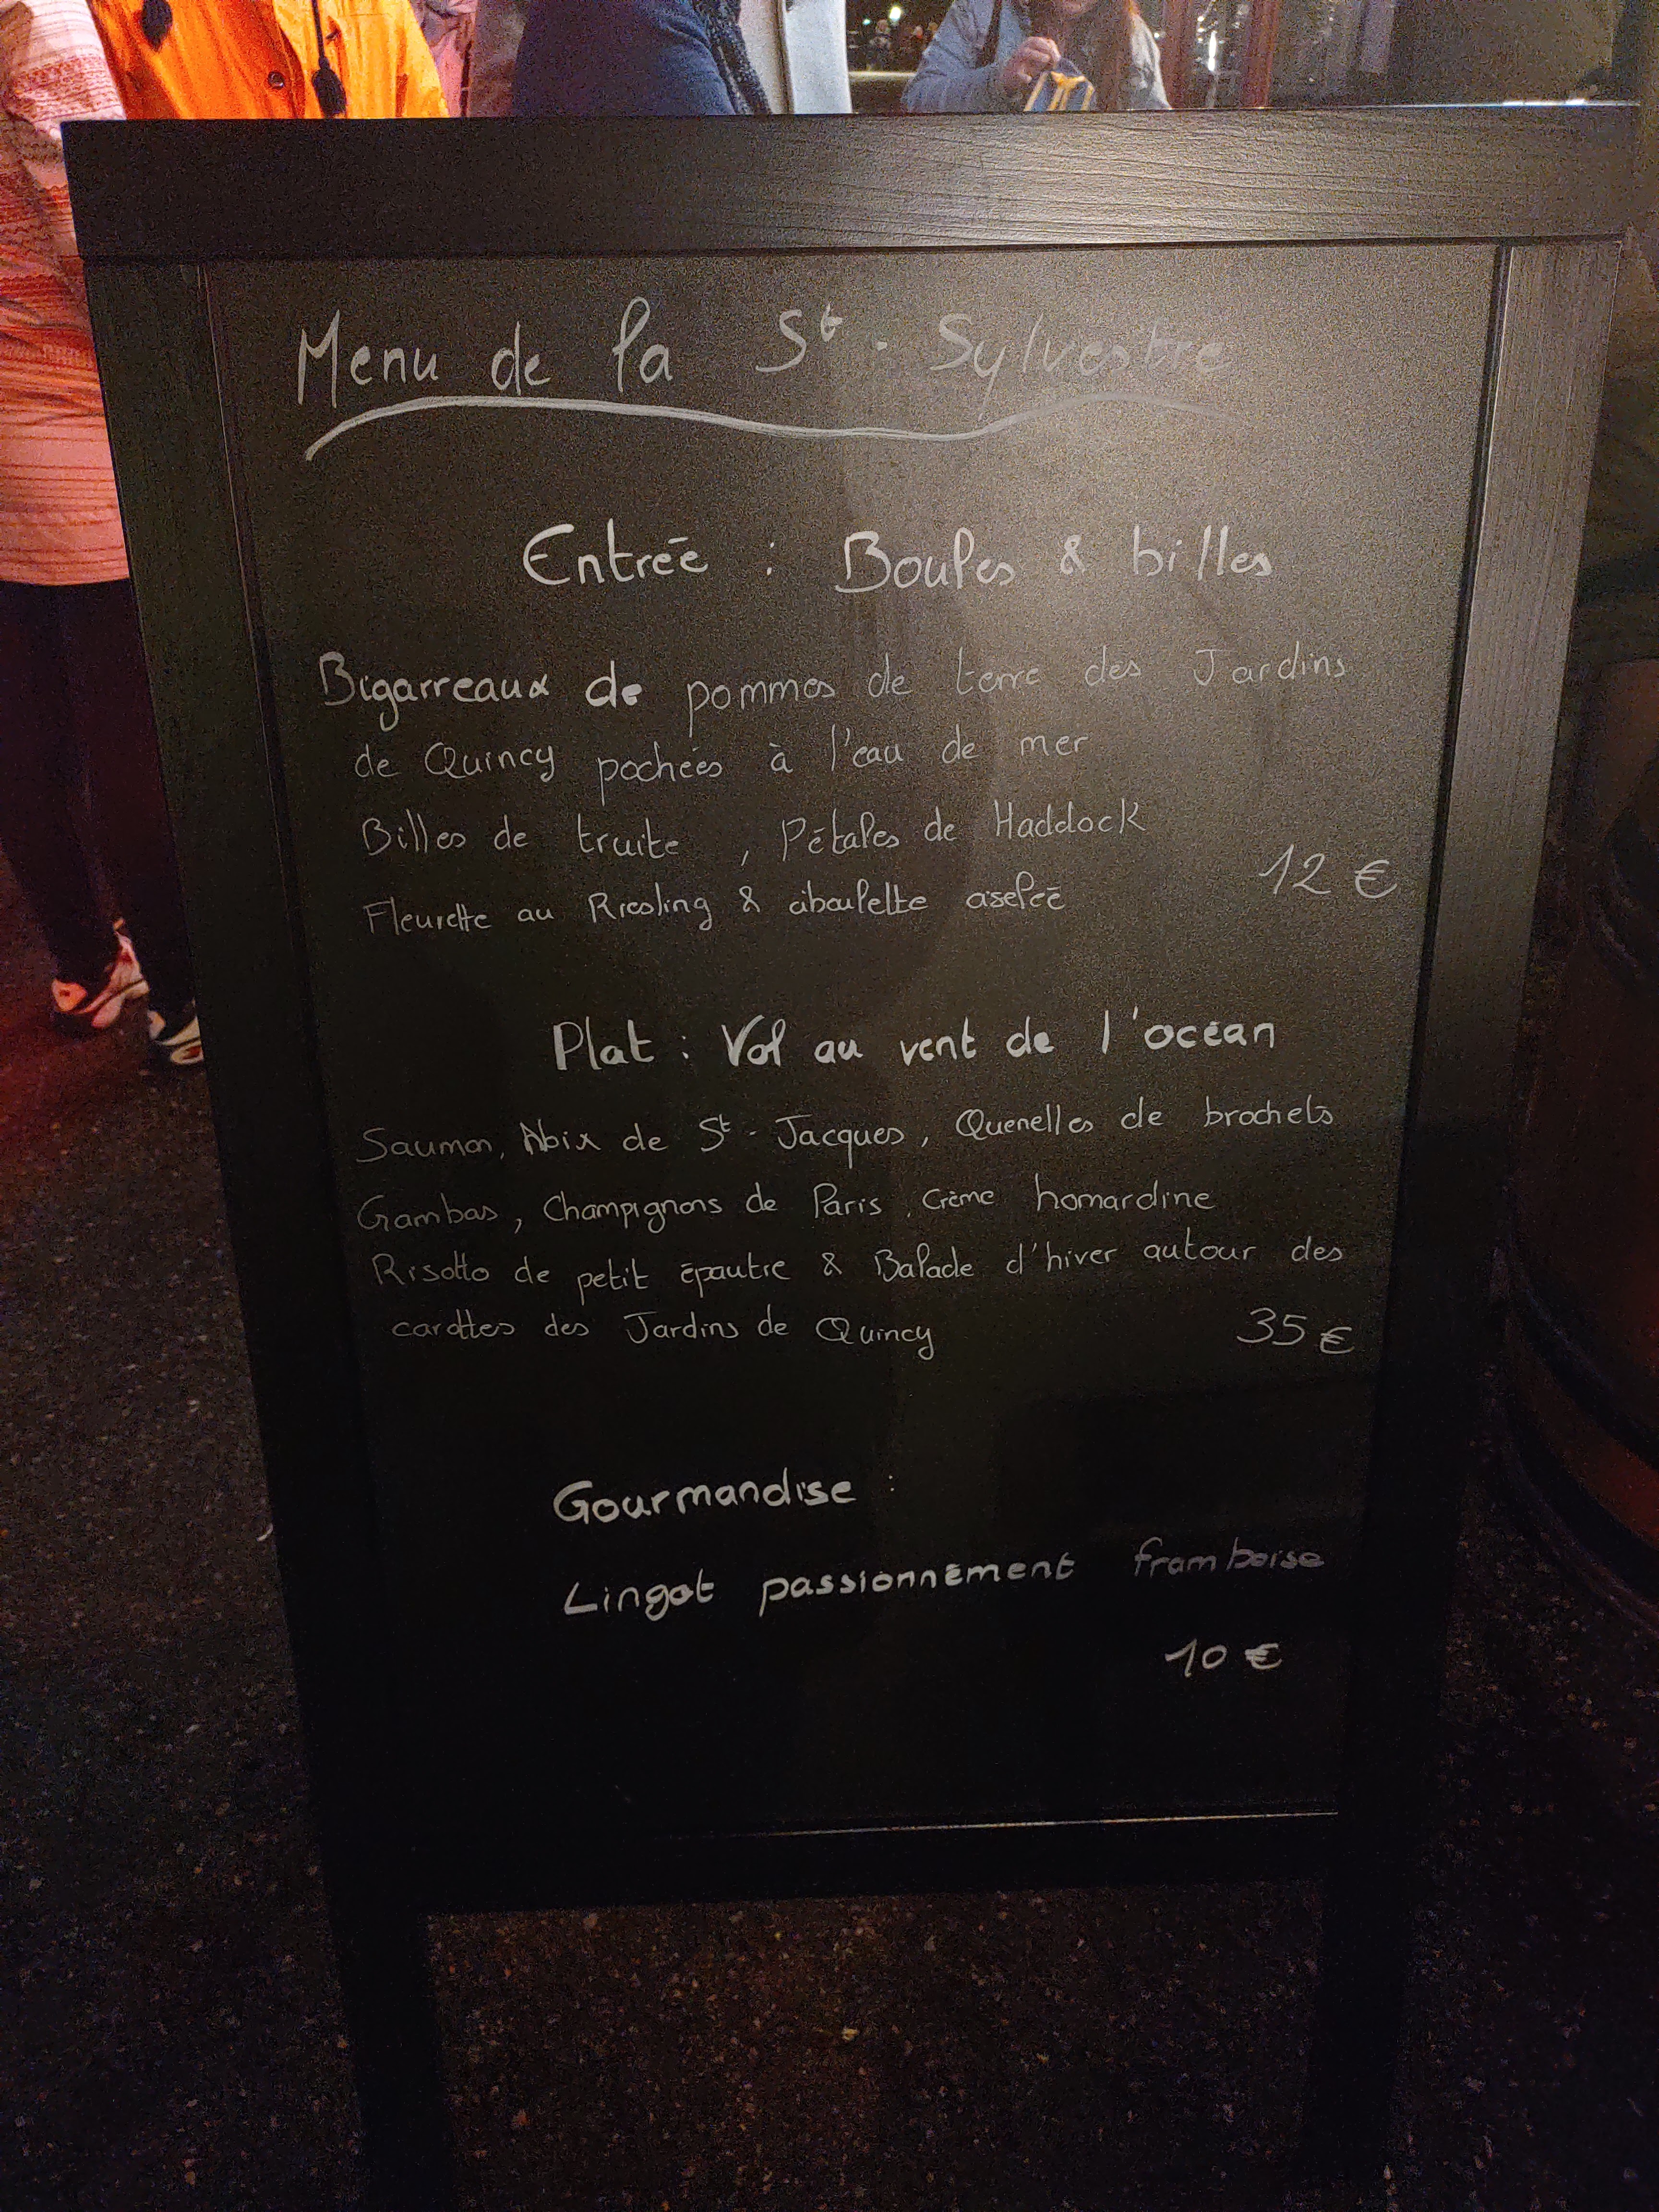 Menu de la St. Sylvestre
Entrée : Boules & billes
Bigarreaux de pommes de terre des Jardins
de Quincy pochées à l'eau de mer
Billes de truite , Pétales de Haddock
Fleurette au Riesling & ciboulette ciselée
12 €
Plat : Vol au vent de l'océan
Saumon, Noix de St-Jacques, Quenelles de brochets
Gambas, Champignons de Paris, Crème homardine
Risotto de petit épautre & Balade d'hiver autour des
carottes des Jardins de Quincy 35 €
Gourmandise :
Lingot passionnément framboise
10 €